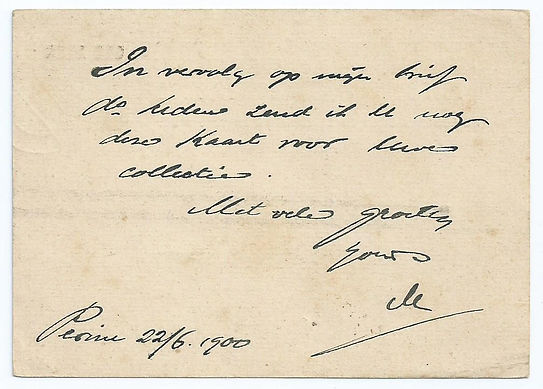 In vervolg op mijn brief
do. heden zend ik U nog
deze Kaart voor Uwe
collectie.
Met vele groeten
yours
22/6. 1900